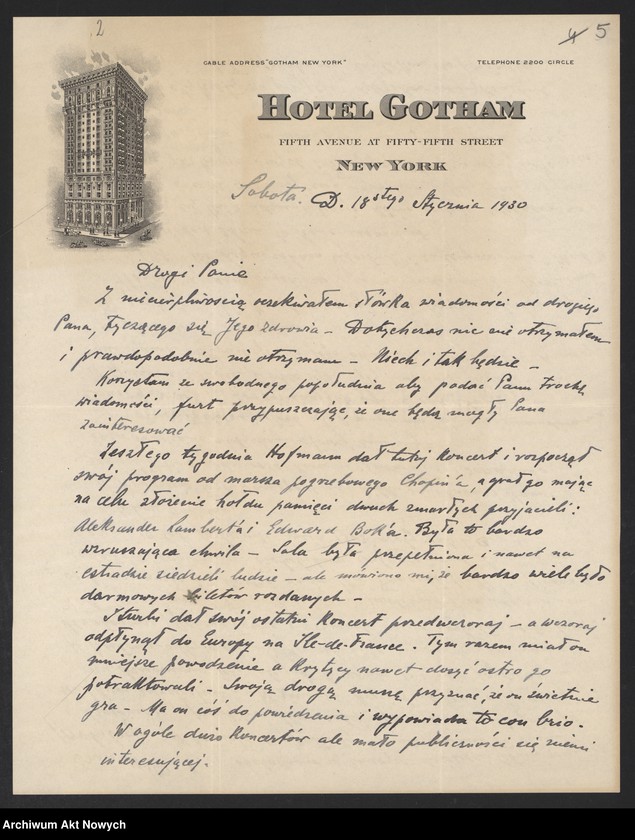 2
4 5
CABLE ADDRESS "GOTHAM NEW YORK"
TELEPHONE 2200 CIRCLE
HOTEL GOTHAM
FIFTH AVENUE AT FIFTY-FIFTH STREET
NEW YORK
Sobota. D. 18stego Stycznia 1930
Drogi Panie
Z niecierpliwością oczekiwałem słówka wiadomości od drogiego
Pana, tyczącego się Jego zdrowia – Dotychczas nic nie otrzymałem
i prawdopodobnie nie otrzymam – Niech i tak będzie –
Korzystam ze swobodnego popołudnia aby podać Panu trochę
wiadomości, furt przypuszczając, że one będą mogły Pana
zainteresować
Zeszłego tygodnia Hofmann dał tutaj Koncert i rozpoczął
swój program od marsza pogrzebowego Chopin'a, a grał go mając
na celu złożenie hołdu pamięci dwuch zmarłych przyjacieli:
Aleksander Lambert'a i Edward Bok'a. Była to bardzo
wzruszająca chwila – Sala była przepełniona i nawet na
estradzie siedzieli ludzie – ale mówiono mi, że bardzo wiele było
darmowych biletów rozdanych –
Iturbi dał swój ostatni Koncert przedwczoraj – a wczoraj
odpłynął do Europy na Ile-de-France. Tym razem miał on
mniejsze powodzenie a Krytycy nawet dosyć ostro go
potraktowali – Swoją drogą muszę przyznać, że on świetnie
gra – Ma on cóś do powiedzenia i wypowiada to con brio.
W ogóle dużo Koncertów ale mało publiczności się niemi
interesującej.
Archiwum Akt Nowych